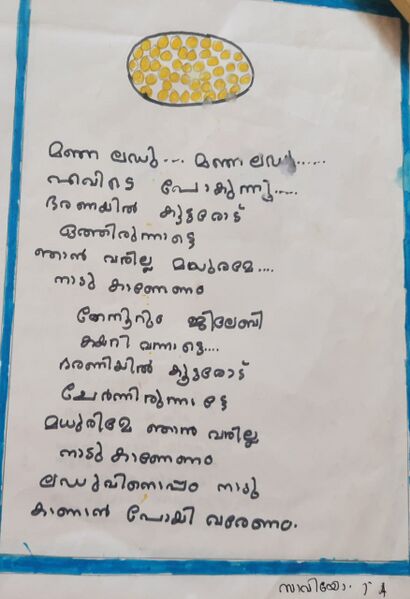 മഞ്ഞ ലഡു... മഞ്ഞ ലഡു.....
എവിടെ പോകുന്നു.....
ഭരണയിൽ കൂട്ടരോട്
ഒത്തിരുന്നാട്ടെ
ഞാൻ വരില്ല മധുരമേ....
നാടു കാണേണം
തേനൂറും ജിലേബി
കയറി വന്നാട്ടെ....
ഭരണിയിൽ കൂട്ടരോട്
ചേർന്നിരുന്നാട്ടെ
മധുരിമേ ഞാൻ വരില്ല
നാടു കാണേണം
ലഡുവിനൊപ്പം നാടു
കാണാൻ പോയി വരേണം.
സാവിയോ. T A